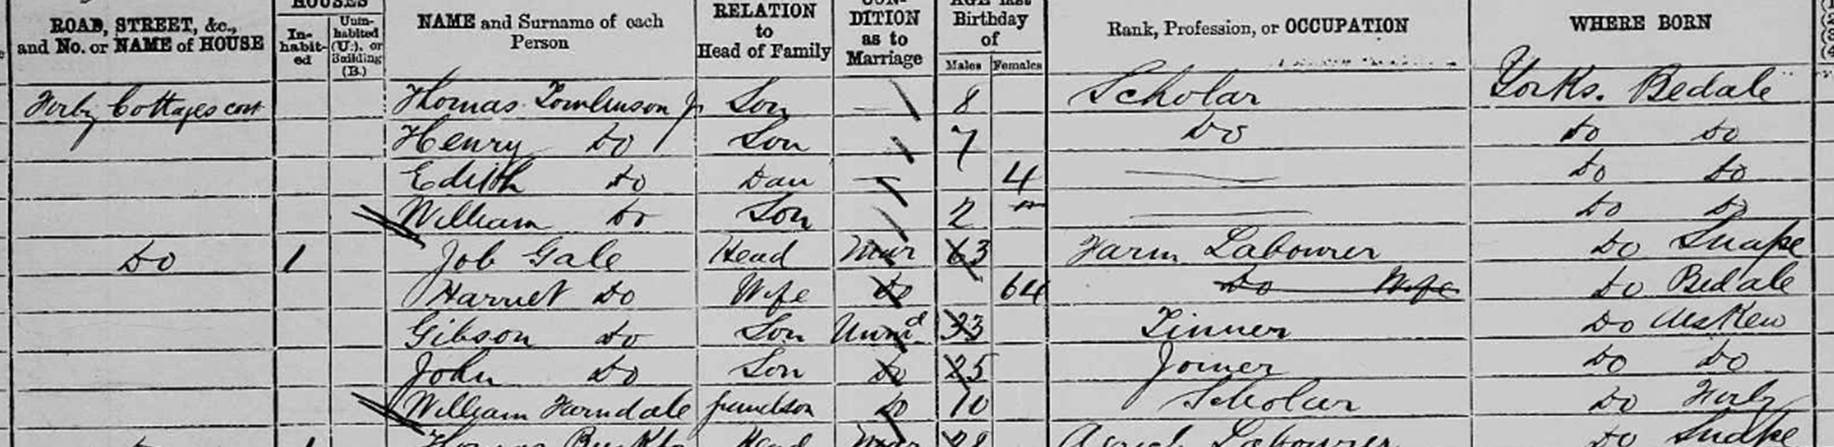 ROAD, STREET, &c., and No. or NAME of HOUSE HOUSES In-habit-ed Unin-habited (U.), or Building (B.) NAME and Surname of each Person RELATION to Head of Family CON-DITION as to Marriage AGE last Birthday of Males Females Rank, Profession, or OCCUPATION WHERE BORN
Firby Cottages cont Thomas Tomlinson Jr Son 8 Scholar Yorks. Bedale
Henry Do Son 7 Do Do Do
Edith Do Dau 4 Do Do
William Do Son 2 Do Do
Do 1 Job Gale Head Mar 63 Farm Labourer Do Snape
Harriet Do Wife Do 64 Do Wife Do Bedale
Gibson Do Son Unmd 33 Tinner Do Aiskew
John Do Son Do 25 Joiner Do Do
William Farndale Grandson Do 10 Scholar Do Firby
1 Thomas Head Mar 28 Agricl Labourer Do Snape